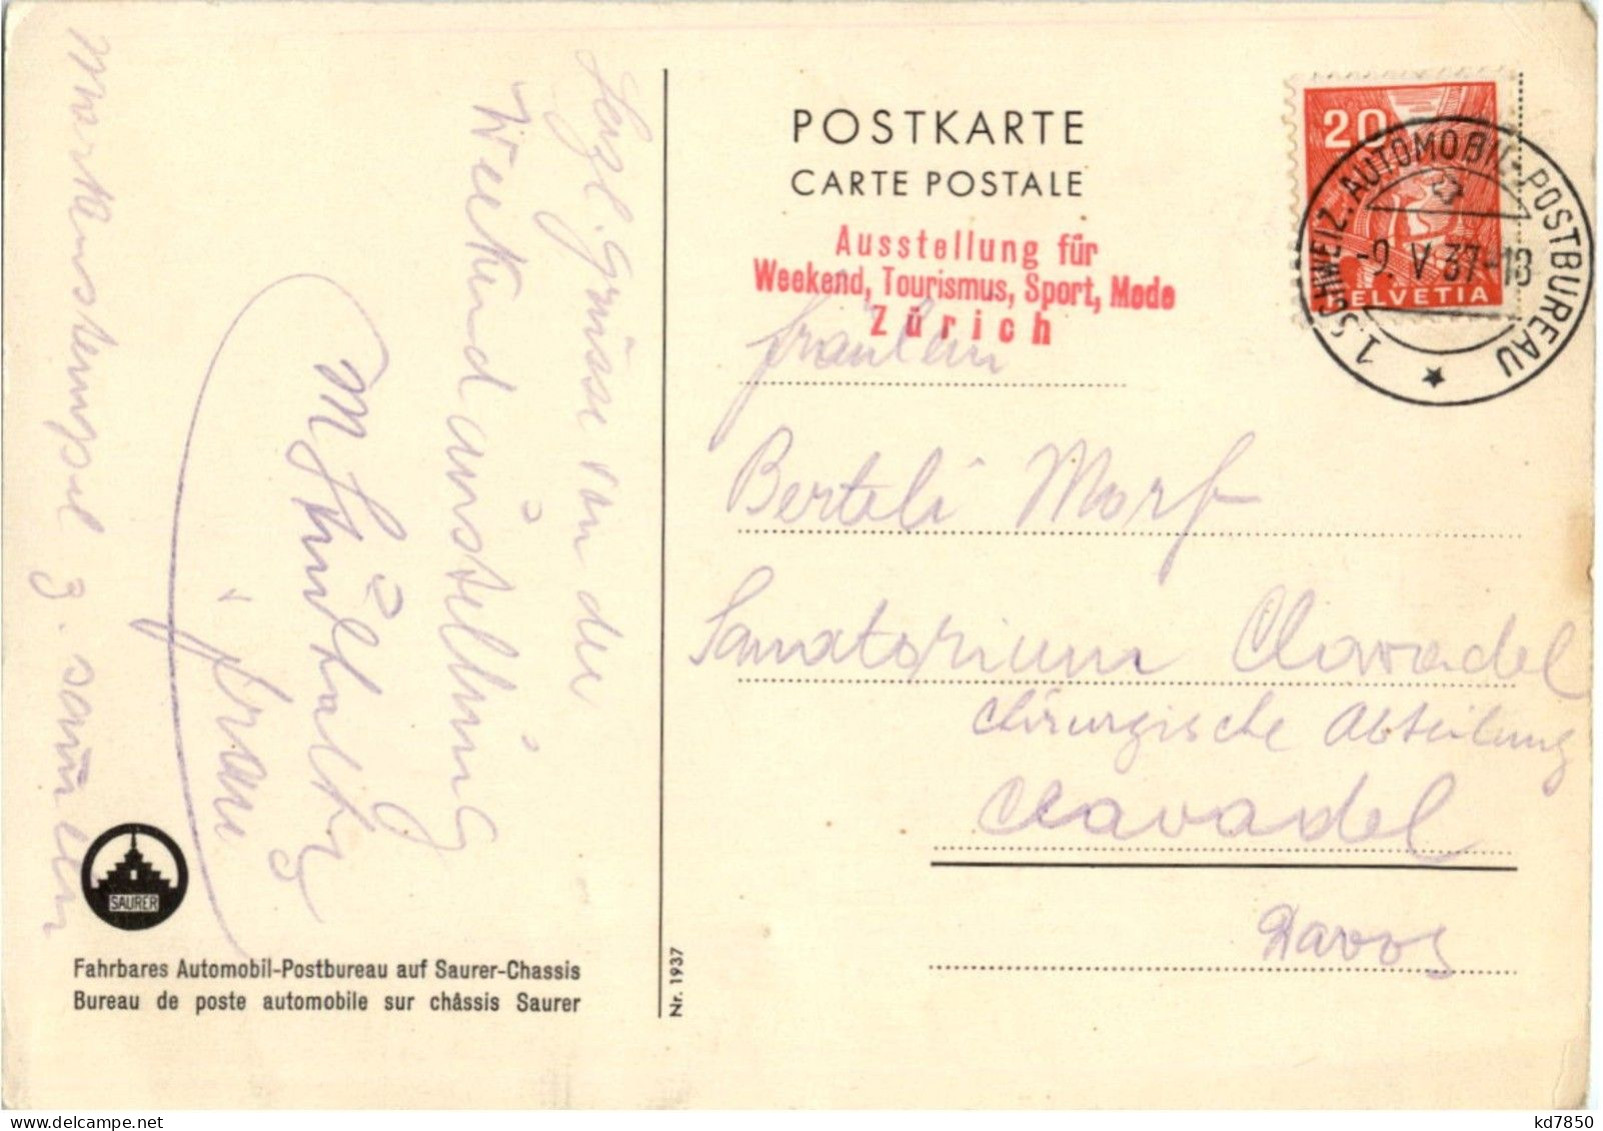 Markenstempel z. sammeln
Herzl. Grüsse von der
Weekendausstellung
M.
u. Frau
SAURER
Fahrbares Automobil-Postbureau auf Saurer-Chassis
Bureau de poste automobile sur châssis Saurer
Nr. 1937
POSTKARTE
CARTE POSTALE
Ausstellung für
Weekend, Tourismus, Sport, Mode
Zürich
20
HELVETIA
1. SCHWEIZ. AUTOMOBIL-POSTBUREAU
-9. V 37-18
Fräulein
Berteli Morf
Sanatorium Clavadel
Chirurgische Abteilung
Clavadel
Davos
www.delcampe.net
kd7850